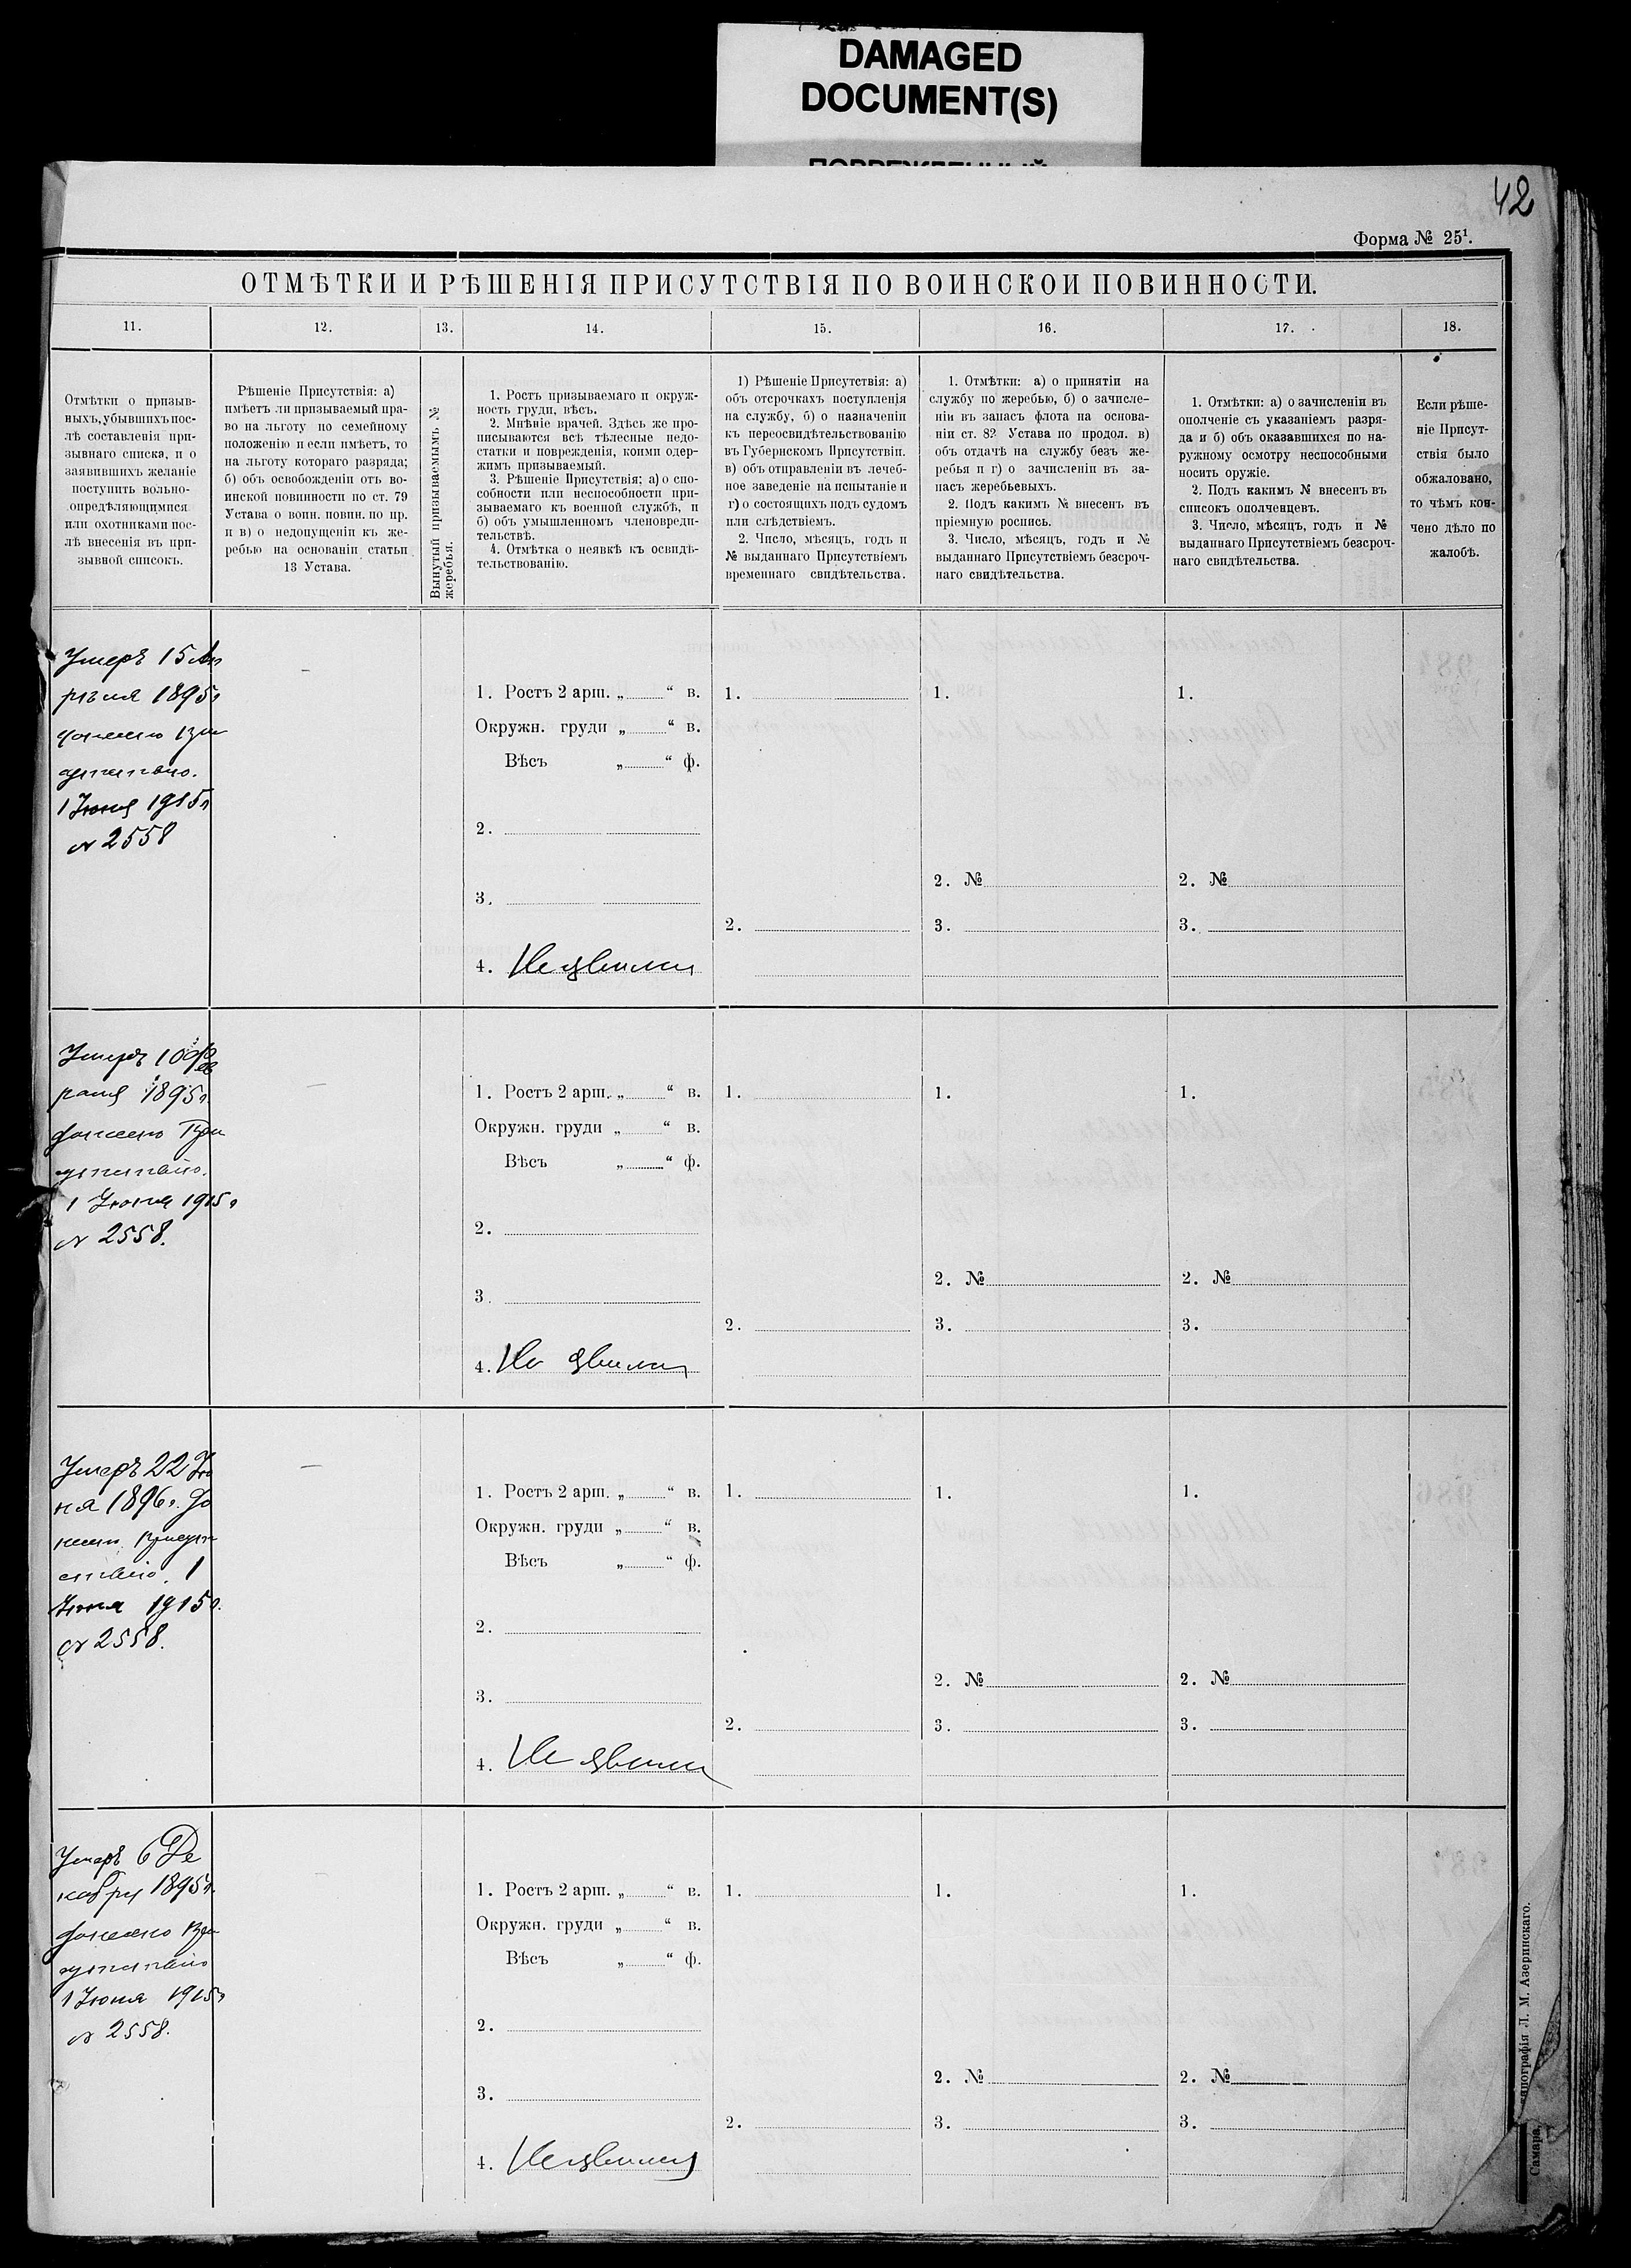 DAMAGED
DOCUMENT(S)
42
Форма № 25¹.
ОТМѢТКИ И РѢШЕНІЯ ПРИСУТСТВІЯ ПО ВОИНСКОИ ПОВИННОСТИ.
11.
12.
13.
14.
15.
16.
17.
18.
Отмѣтки о призыв-
ныхъ, убывшихъ пос-
лѣ составленія при-
зывнаго списка, и о
заявившихъ желаніе
поступить вольно-
опредѣляющимися
или охотниками пос-
лѣ внесенія въ при-
зывной списокъ.
Рѣшеніе Присутствія: а)
имѣетъ ли призываемый пра-
во на льготу по семейному
положенію и если имѣетъ, то
на льготу котораго разряда;
б) объ освобожденіи отъ во-
инской повинности по ст. 79
Устава о воин. повин. по пр.
и в) о недопущеніи къ же-
ребью на основаніи статьи
13 Устава.
Вынутый призываемымъ №
жеребья.
1. Ростъ призываемаго и окруж-
ность груди, вѣсъ.
2. Мнѣніе врачей. Здѣсь же про-
писываются всѣ тѣлесные недо-
статки и поврежденія, коими одер-
жимъ призываемый.
3. Рѣшеніе Присутствія; а) о спо-
собности или неспособности при-
зываемаго къ военной службѣ, и
б) объ умышленномъ членовреди-
тельствѣ.
4. Отмѣтка о неявкѣ къ освидѣ-
тельствованію.
1) Рѣшеніе Присутствія: а)
объ отсрочкахъ поступленія
на службу, б) о назначеніи
къ переосвидѣтельствованію
въ Губернскомъ Присутствіи.
в) объ отправленіи въ лечеб-
ное заведеніе на испытаніе и
г) о состоящихъ подъ судомъ
или слѣдствіемъ.
2. Число, мѣсяцъ, годъ и
№ выданнаго Присутствіемъ
временнаго свидѣтельства.
1. Отмѣтки: а) о принятіи на
службу по жеребью, б) о зачисле-
ніи въ запасъ флота на основа-
ніи ст. 82 Устава по продол. в)
объ отдачѣ на службу безъ же-
ребья и г) о зачисленіи въ за-
пасъ жеребьевыхъ.
2. Подъ какимъ № внесенъ въ
пріемную роспись.
3. Число, мѣсяцъ, годъ и №
выданнаго Присутствіемъ безсроч-
наго свидѣтельства.
1. Отмѣтки: а) о зачисленіи въ
ополченіе съ указаніемъ разря-
да и б) объ оказавшихся по на-
ружному осмотру неспособными
носить оружіе.
2. Подъ какимъ № внесенъ въ
списокъ ополченцевъ.
3. Число, мѣсяцъ, годъ и №
выданнаго Присутствіемъ безсроч-
наго свидѣтельства.
Если рѣше-
ніе Присут-
ствія было
обжаловано,
то чѣмъ кон-
чено дѣло по
жалобѣ.
Умеръ 15 Ап
рѣля 1895г
1 Іюня 1915г
№ 2558
1. Ростъ 2 арш. „ “ в.
Окружн. груди „ “ в.
Вѣсъ „ “ ф.
2.
3.
4. Не явился
1.
2.
1.
2. №
3.
1.
2. №
3.
Умеръ 10 Фев
раля 1895г
1 Іюня 1915г
№ 2558.
1. Ростъ 2 арш. „ “ в.
Окружн. груди „ “ в.
Вѣсъ „ “ ф.
2.
3.
4. Не явился
1.
2.
1.
2. №
3.
1.
2. №
3.
Умеръ 22 Iю
ня 1896г. До
1
Іюня 1915г.
№ 2558.
1. Ростъ 2 арш. „ “ в.
Окружн. груди „ “ в.
Вѣсъ „ “ ф.
2.
3.
4. Не явился
1.
2.
1.
2. №
3.
1.
2. №
3.
Умеръ 6 Де
кабря 1895г.
1 Іюня 1915г
№ 2558.
1. Ростъ 2 арш. „ “ в.
Окружн. груди „ “ в.
Вѣсъ „ “ ф.
2.
3.
4. Не явился
1.
2.
1.
2. №
3.
1.
2. №
3.
Самара. Л. М. Азеринскаго.